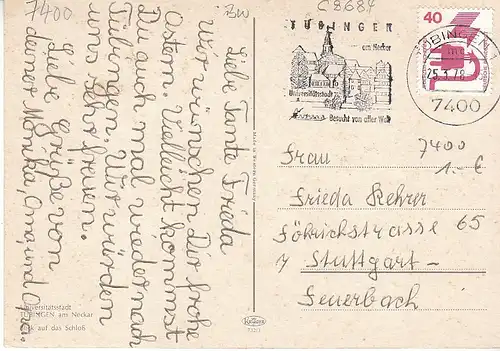 7400
BW
C8684
Liebe Tante Frieda
wir wünschen Dir frohe
Ostern. Vielleicht kommst
Du auch mal wieder nach
Tübingen. Wir würden
uns sehr freuen.
Liebe Grüße von
deiner Monika, Oma, und Opa.
Universitätsstadt
TÜBINGEN am Neckar
auf das Schloß
Krüger
TÜBINGEN
am Neckar
Universitätsstadt
Besucht von aller Welt
TÜBINGEN 1
25.3.78
7400
40
7400
1.- €
Frau
Frieda Kehrer
Föhrichstrasse 65
7 Stuttgart-
Feuerbach